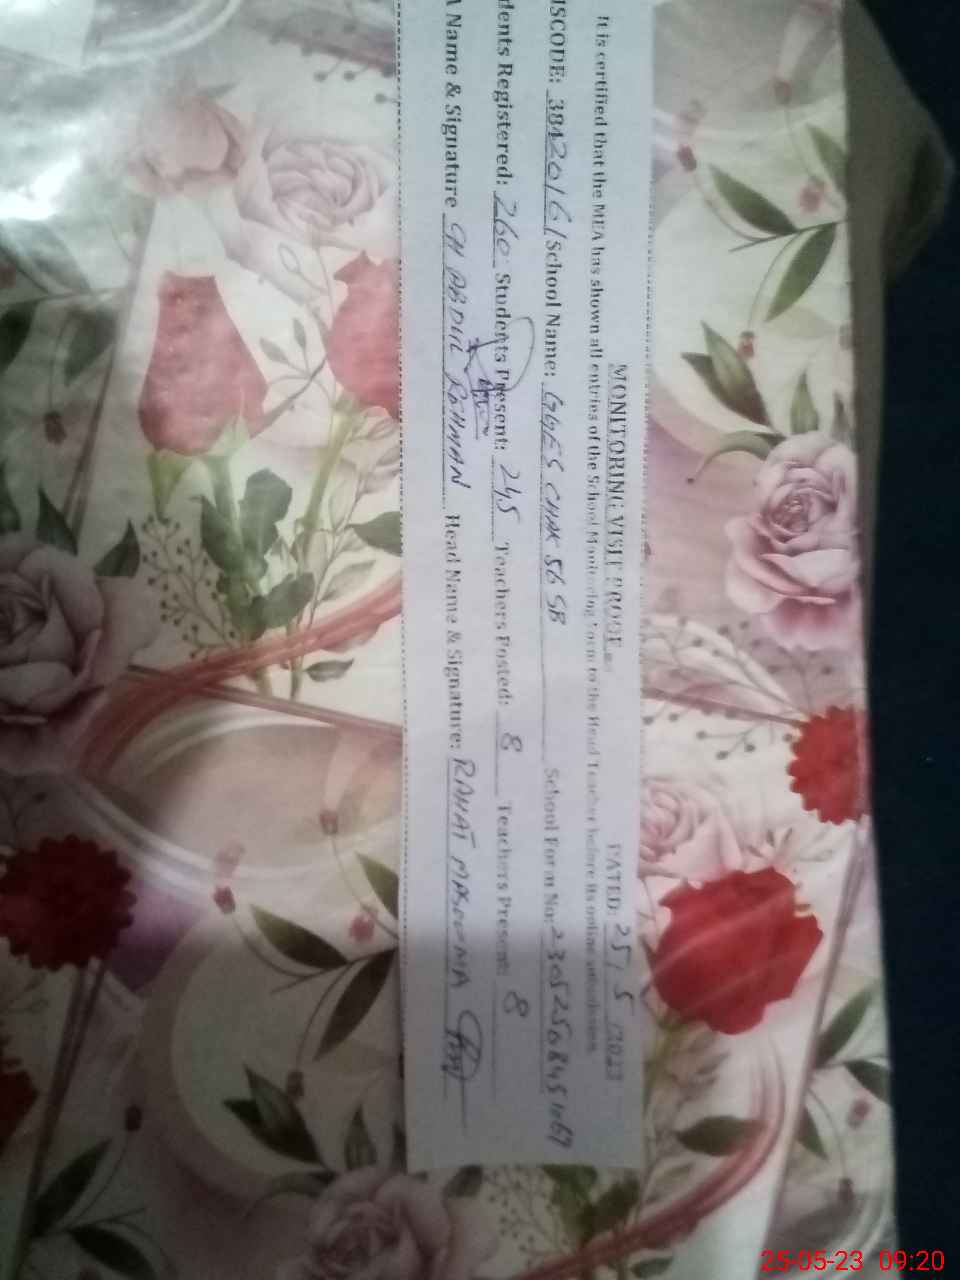 MONITORING VISIT PROOF DATED: 25/5/2023
It is certified that the MEA has shown all entries of the School Monitoring Form to the Head Teacher before its online submission.
ISCODE: 38420161 School Name: GGES CHAK 56 SB School Form No: 23052508451067
dents Registered: 260 Students Present: 245 Teachers Posted: 8 Teachers Present: 8
A Name & Signature ABDUL REHMAN Head Name & Signature: RAHAT MASOOMA
25-05-23 09:20